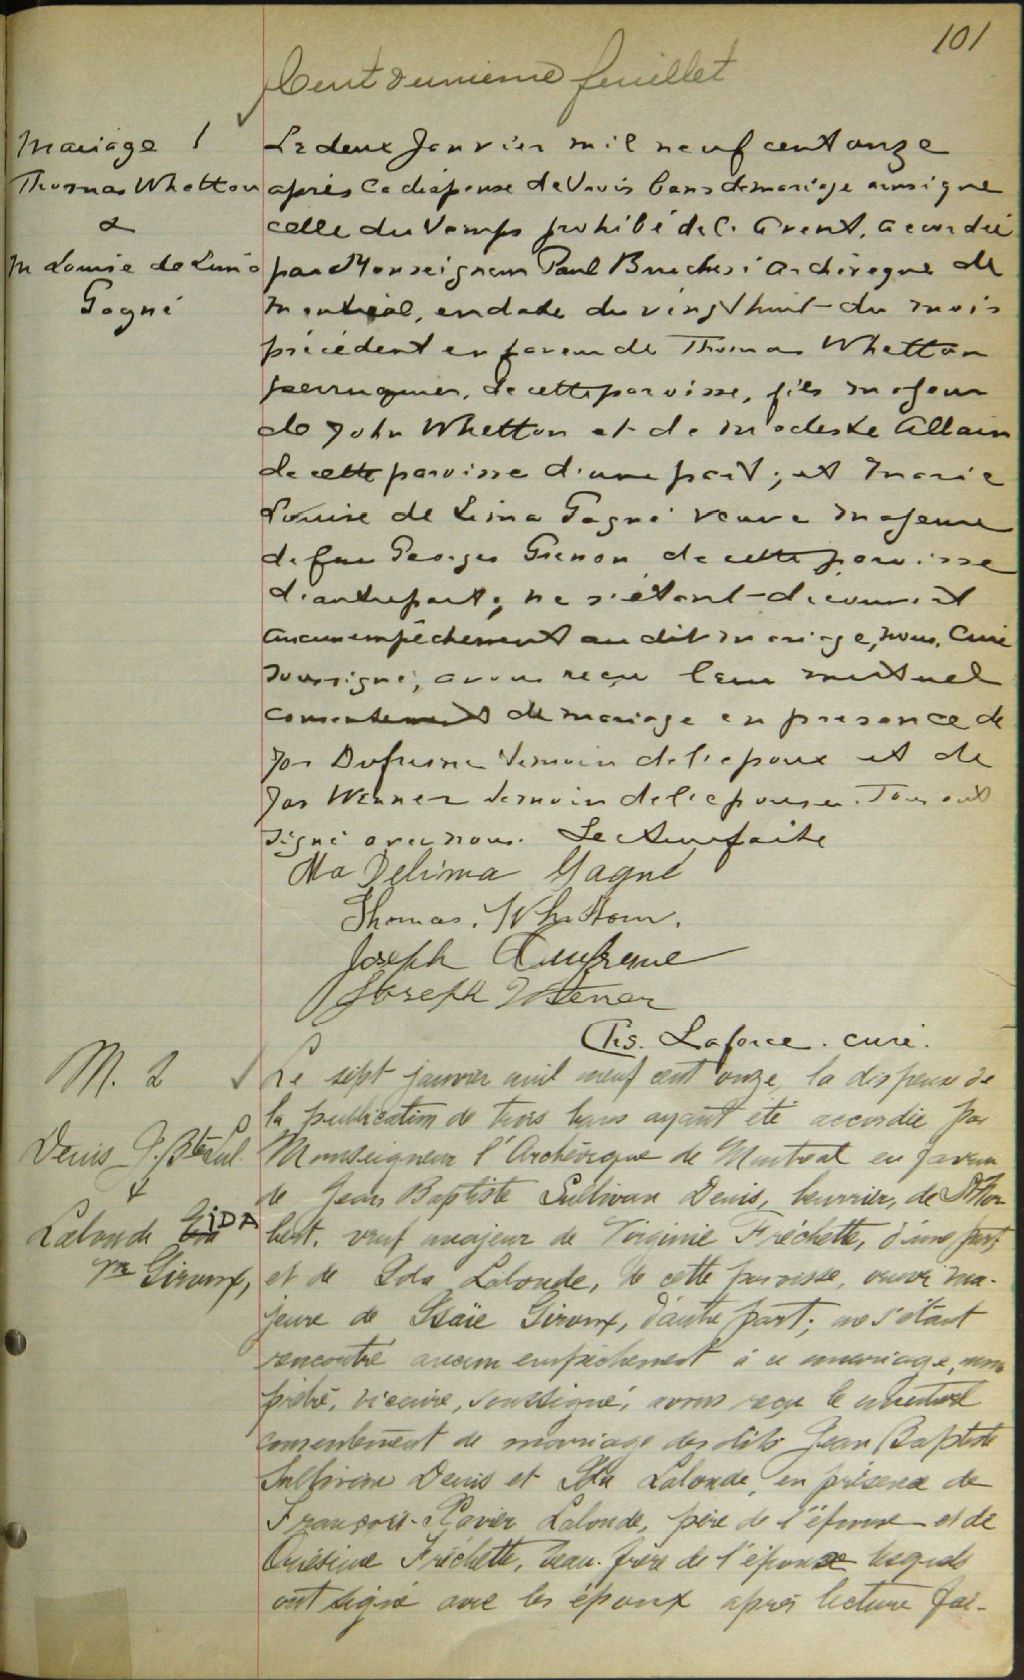 101
Cent unieme feuillet
Mariage 1
Thomas Whetton
&
M Louise de Lima
Gagné
Le deux Janvier mil neuf cent onze
après la dispense de trois bans de mariage ainsi que
celle du temps prohibé de l'avent, accordée
par Monseigneur Paul Bruchesi archevêque de
Montréal, en date du vingt huit du mois
précédent en faveur de Thomas Whetton
perruquier, de cette paroisse, fils majeur
de John Whetton et de Modeste Allain
de cette paroisse d'une part; et Marie
Louise de Lima Gagné veuve majeure
de feu Georges Grenon de cette paroisse
d'autre part; ne s'étant découvert
aucun empêchement au dit mariage, nous, Curé
soussigné, avons reçu leur mutuel
consentement de mariage en présence de
Jos Dufresne témoin de l'époux et de
Jos Wenner témoin de l'épouse. Tous ont
signé avec nous. Lecture faite
Ma Delima Gagné
Thomas. Whettom.
Joseph Dufresne
Joseph Wener
Chs. Laforce. curé.
M. 2
Denis J. Bte Sul.
&
Lalonde IDA
Vve Giroux,
Le sept janvier mil neuf cent onze, la dispense de
la publication de trois bans ayant été accordée par
Monseigneur l'Archevêque de Montréal en faveur
de Jean Baptiste Sullivan Denis, beurrier, de St Nor-
bert, veuf majeur de Virginie Fréchette, d'une part;
et de Ida Lalonde, de cette paroisse, veuve ma-
jeure de Isaïe Giroux, d'autre part; ne s'étant
rencontré aucun empêchement à ce mariage, nous
prêtre, vicaire, soussigné, avons reçu le mutuel
consentement de mariage des dits Jean Baptiste
Sullivan Denis et Ida Lalonde, en présence de
François-Xavier Lalonde, père de l'épouse et de
Onésime Fréchette, beau-frère de l'époux lesquels
ont signé avec les époux après lecture fai-